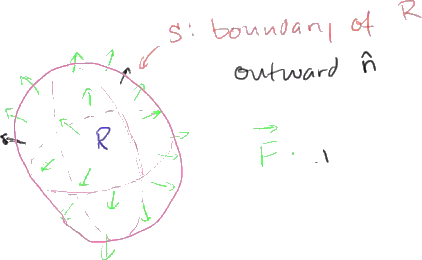 S: boundary of R
outward n̂
R
F⃗ ·